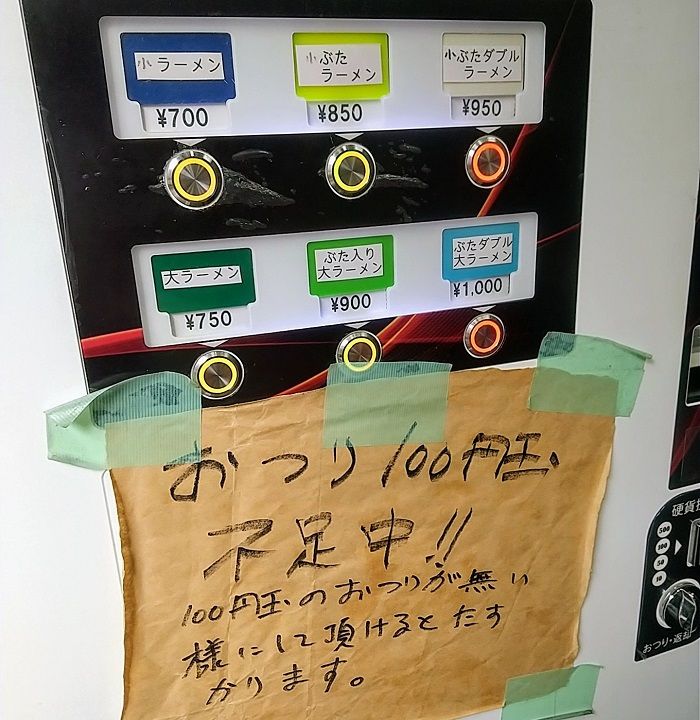 小 ラーメン
¥700
小 ぶた
ラーメン
¥850
小ぶたダブル
ラーメン
¥950
大ラーメン
¥750
ぶた入り
大ラーメン
¥900
ぶたダブル
大ラーメン
¥1,000
おつり100円玉
不足中!!
100円玉のおつりが無い
様にして頂けるとたす
かります。
硬貨投
500
100
50
10
おつり・返却